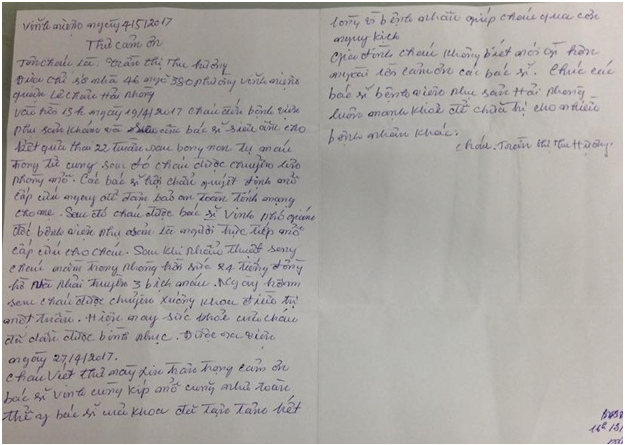 Vĩnh niệm ngày 4/5/2017
Thư cảm ơn
Tên cháu là: Trần thị Thu Hường
Địa chỉ số nhà 46 ngõ 380 phường vĩnh niệm
quận Lê Chân Hải Phòng
Vào hồi 15h ngày 19/4/2017 cháu đến bệnh viện
phụ sản khám và siêu âm bác sĩ siêu âm cho
kết quả thai 22 tuần rau bong non tụ máu
trong tử cung sau đó cháu được chuyển vào
phòng mổ. Các bác sĩ hội chẩn quyết định mổ
cấp cứu ngay để đảm bảo an toàn tính mạng
cho mẹ. Sau đó cháu được bác sĩ Vinh phó giám
đốc bệnh viện phụ sản là người trực tiếp mổ
cấp cứu cho cháu. Sau khi phẫu thuật song
cháu nằm trong phòng hồi sức 24 tiếng đồng
hồ phải truyền 3 bịch máu. Ngày hôm
sau cháu được chuyển xuống khoa điều trị
một tuần. Hiện nay sức khỏe của cháu
đã dần được bình phục. Được ra viện
ngày 27/4/2017.
Cháu viết thư này xin trân trọng cảm ơn
bác sĩ Vinh cùng kíp mổ cũng như toàn
thể y bác sĩ của khoa đã tận tâm hết
lòng vì bệnh nhân giúp cháu qua cơn
nguy kịch
Gia đình cháu không biết nói gì hơn
ngoài lời cảm ơn các bác sĩ. Chúc các
bác sĩ bệnh viện phụ sản Hải Phòng
luôn mạnh khỏe để chữa trị cho nhiều
bệnh nhân khác.
Cháu: Trần thị Thu Hường